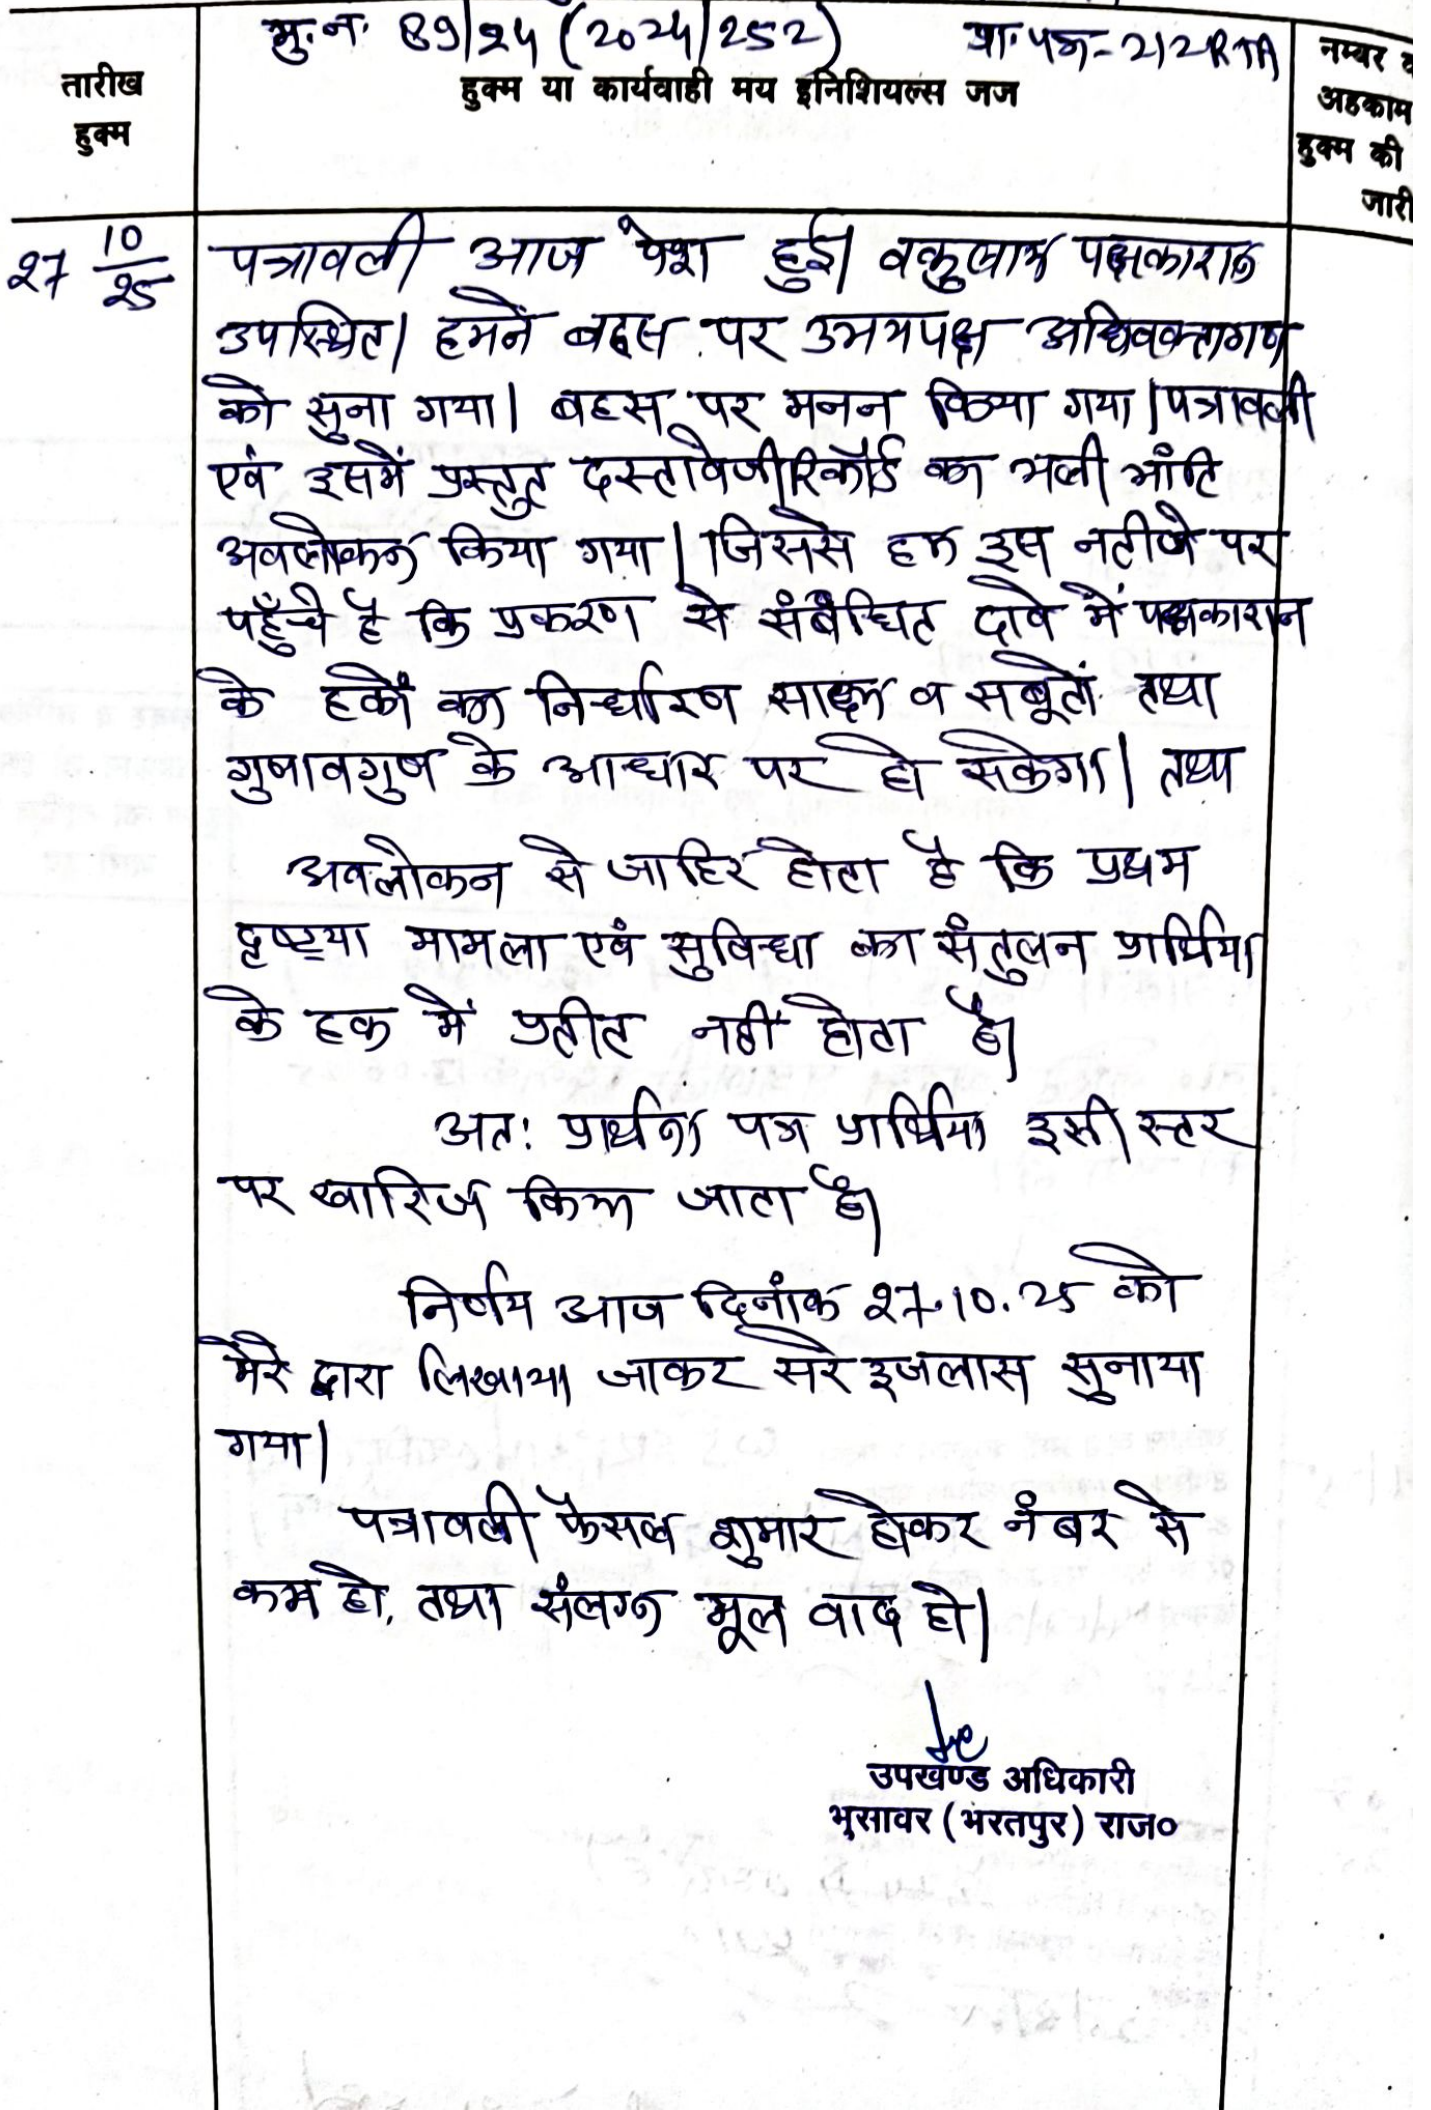 मु.न. 89/24 (2024/252) प्रा.पत्र-212RTA
तारीख
हुक्म
हुक्म या कार्यवाही मय इनिशियल्स जज
नम्बर व
अहकाम
हुक्म की
जारी
27 10/25
पत्रावली आज पेश हुई। वकुलाय पक्षकारान
उपस्थित। हमने बहस पर उभयपक्ष अधिवक्तागण
को सुना गया। बहस पर मनन किया गया। पत्रावली
एवं इसमें प्रस्तुत दस्तावेजी रिकॉर्ड का भली भांति
अवलोकन किया गया। जिससे हम इस नतीजे पर
पहुँचे है कि प्रकरण से संबंधित दावे में पक्षकारान
के हकों का निर्धारण साक्ष्य व सबूतों तथा
गुणावगुण के आधार पर हो सकेगा। तथा
अवलोकन से जाहिर होता है कि प्रथम
दृष्टया मामला एवं सुविधा का संतुलन प्रार्थिया
के हक में प्रतीत नहीं होता है।
अतः प्रार्थना पत्र प्रार्थिया इसी स्तर
पर खारिज किया जाता है।
निर्णय आज दिनांक 27.10.25 को
मेरे द्वारा लिखाया जाकर सरे इजलास सुनाया
गया।
पत्रावली फैसल शुमार होकर नंबर से
कम हो, तथा संलग्न मूल वाद हो।
उपखण्ड अधिकारी
भुसावर (भरतपुर) राज०